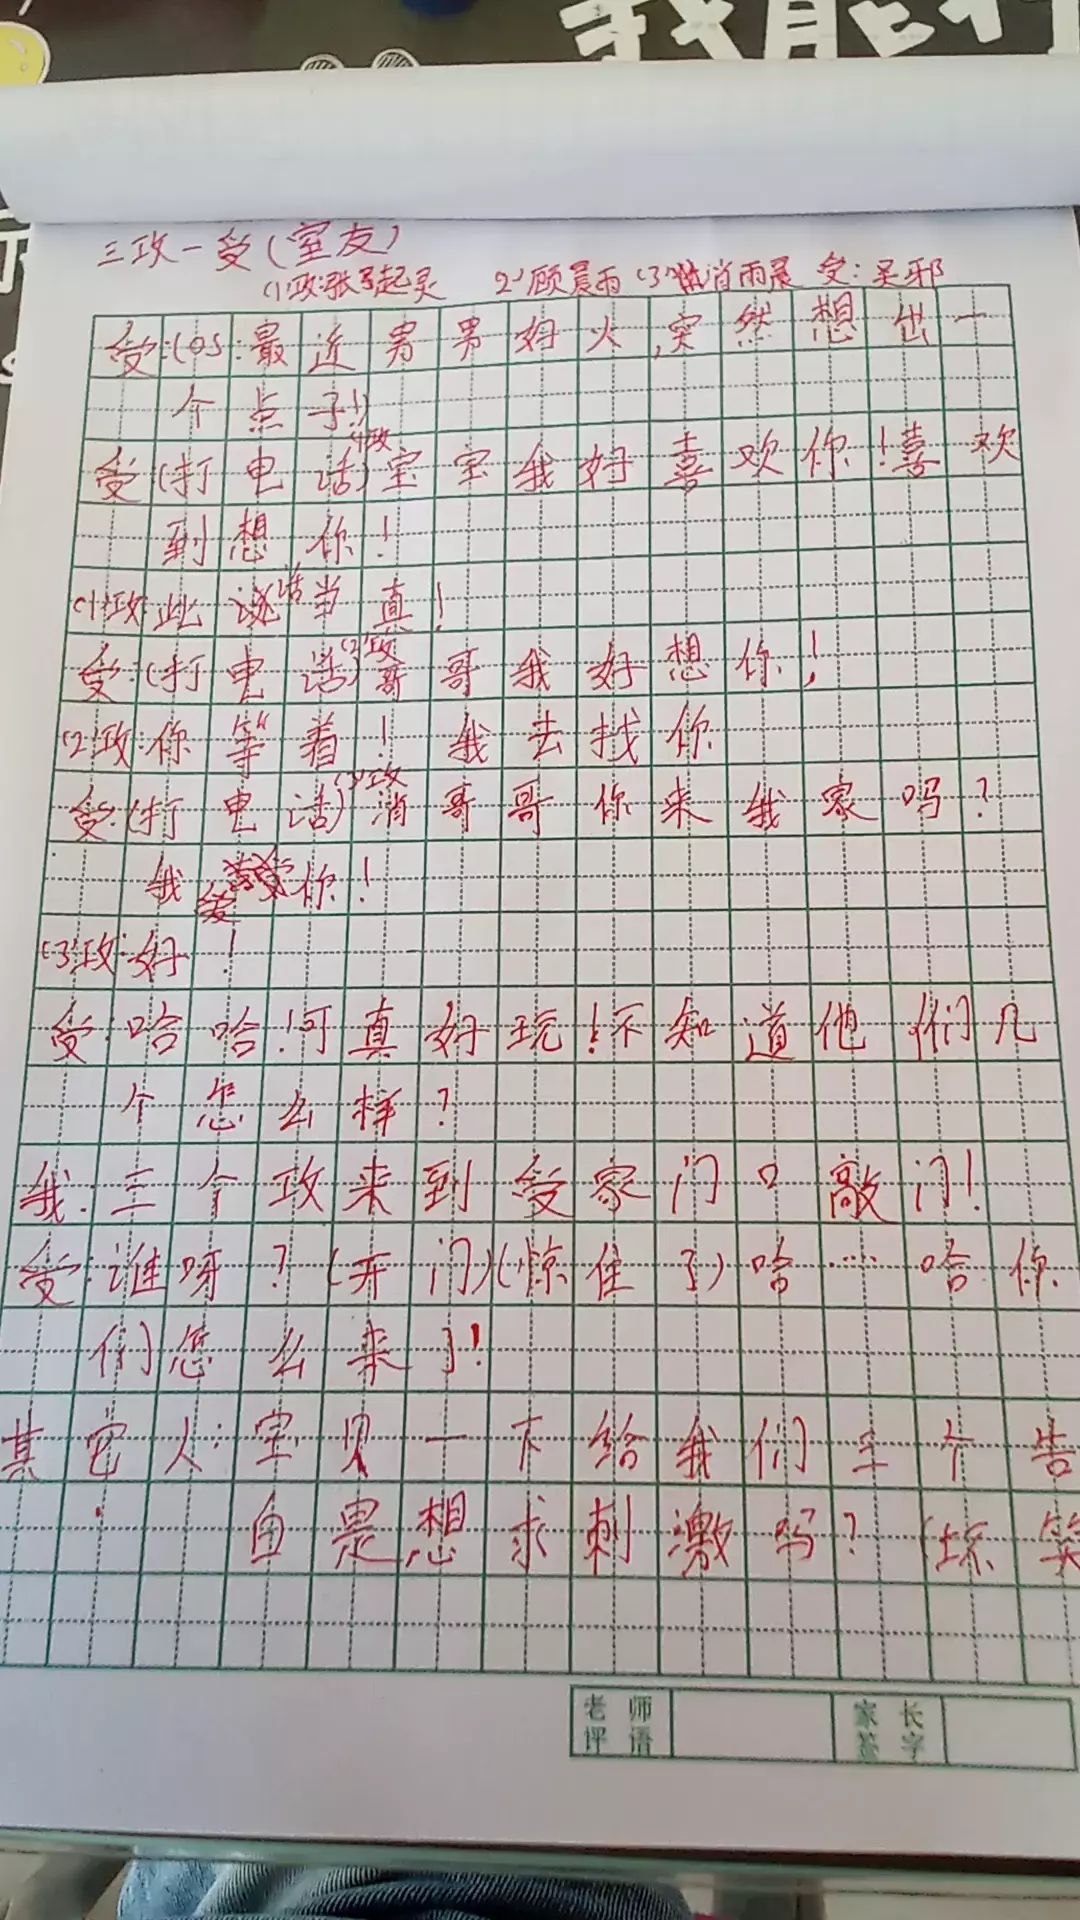 我能行
三攻一受(室友)
(1)攻:张起灵 (2)顾晨雨 (3)肖雨晨 受:吴邪
受:(os:最近男男好火,突然想出一
个点子!)
受(打电话)(1)攻宝宝我好喜欢你!喜欢
到想你!
(1)攻:此话当真!
受:(打电话)(2)攻哥哥我好想你!
(2)攻:你等着!我去找你
受:(打电话)(3)攻消哥哥你来我家吗?
我爱你!
(3)攻:好!
受:哈哈!可真好玩!不知道他们几
个怎么样?
我:三个攻来到受家门口敲门!
受:谁呀?(开门)(惊住了)哈…哈你
们怎么来了!
其它人:宝贝一下给我们三个告
白是想求刺激吗?(坏笑
老师评语
家长签字